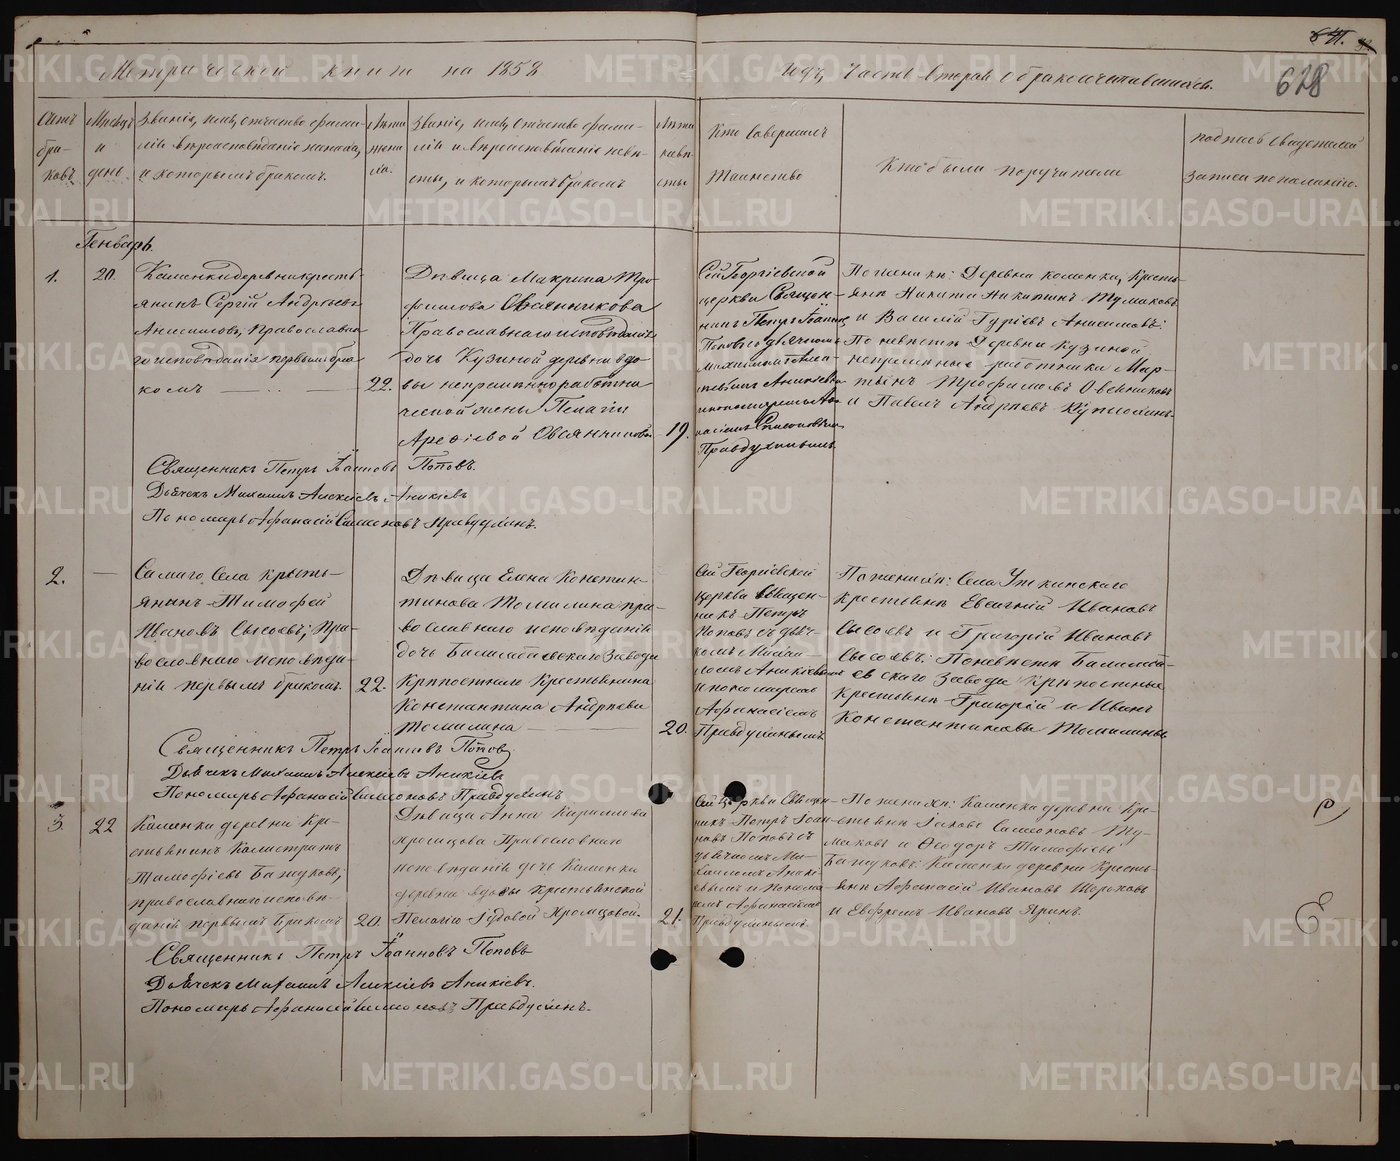 641.
628
Метрической книги на 1858
годъ, часть вторая о бракосочетавшихся.
Счетъ браковъ
Мѣсяцъ и день
Званіе, имя, отчество, фамилія и вѣроисповѣданіе жениха, и которымъ бракомъ.
Лѣта жениха.
Званіе, имя, отчество, фамилія и вѣроисповѣданіе невѣсты, и которымъ бракомъ
Лѣта невѣсты
Кто совершалъ Таинство
Кто были поручители
подпись свидетелей записи по желанію.
Генварь.
1.
20
Каменки деревни кресть-
янинъ Сергій Андреевъ
Анисимовъ, православна-
го исповѣданія первымъ бра-
комъ
22.
Дѣвица Макрина Тро-
фимова Овсянникова
Православнаго исповѣданія
дочь Кузиной деревни вдо-
вы непремѣнно работни-
ческой жены Пелагіи
Арефіевой Овсянниковой
19.
Сей Георгіевской
церкви Священ-
никъ Петръ Іоанновъ
Поповъ съ дьячкомъ
Михаиломъ Алексі-
евымъ Аникіевымъ
и пономаремъ Афа-
насіемъ Симеоновымъ
Правдухинымъ
По женихѣ: Деревни Каменки, кресть-
яне Никита Никитинъ Тумаковъ
и Василій Гуріевъ Анисимовъ:
По невѣсте Деревни Кузиной
непремѣнные работники Мар-
тынъ Трофимовъ Овсянниковъ
и Павелъ Андреевъ
Священникъ Петръ Іоанновъ Поповъ.
Дьячекъ Михаилъ Алексіевъ Аникіевъ
Пономарь Афанасій Симеоновъ Правдухинъ.
2.
Самаго Села кресть-
янинъ Тимофей
Ивановъ Сысоевъ; Пра-
вославнаго исповѣда-
нія первымъ бракомъ.
22.
Дѣвица Елена Констан-
тинова Томилина пра-
вославнаго исповѣданія
дочь Билимбаевскаго завода
Крѣпостнаго Крестьянина
Константина Андреева
Томилина
20.
Сей Георгіевской
Церкви Священ-
никъ Петръ
Поповъ съ дьяч-
комъ Михаи-
ломъ Аникіевымъ
и пономаремъ
Афанасіемъ
Правдухинымъ
По женихѣ: Села Уткинскаго
крестьяне Евгений Ивановъ
Сысоевъ и Григорій Ивановъ
Сысоевъ: По невѣсте Билимба-
евскаго завода Крѣпостные
Крестьяне Григорій и Иванъ
Константиновы Томилины
Священникъ Петръ Іоанновъ Поповъ
Дьячекъ Михаилъ Алексіевъ Аникіевъ
Пономарь Афанасій Симеоновъ Правдухинъ
3.
22
Каменки деревни Кре-
стьянинъ Калистратъ
Тимофіевъ Бажуковъ,
православнаго исповѣ-
данія первымъ Бракомъ
20.
Дѣвица Анна Кирилова
Хромцова Православнаго
исповѣданія дочь Каменки
деревни вдовы Крестьянской
Пелагіи Хромцовой.
21.
Сей Церкви Священ-
никъ Петръ Іоан-
новъ Поповъ съ
дьячкомъ Ми-
хаиломъ Аники-
евымъ и Понома-
ремъ Афанасіемъ
Правдухинымъ.
По женихѣ: Каменки деревни Кре-
стьяне Іаковъ Симеоновъ Ту-
маковъ и Феодоръ Тимофіевъ
Бажуковъ: Каменки деревни Кресть-
яне Афанасій Ивановъ Шороховъ
и Евфремъ Ивановъ Яринъ.
Священникъ Петръ Іоанновъ Поповъ
Дьячекъ Михаилъ Алексіевъ Аникіевъ.
Пономарь Афанасій Симеоновъ Правдухинъ.
METRIKI.GASO-URAL.RU